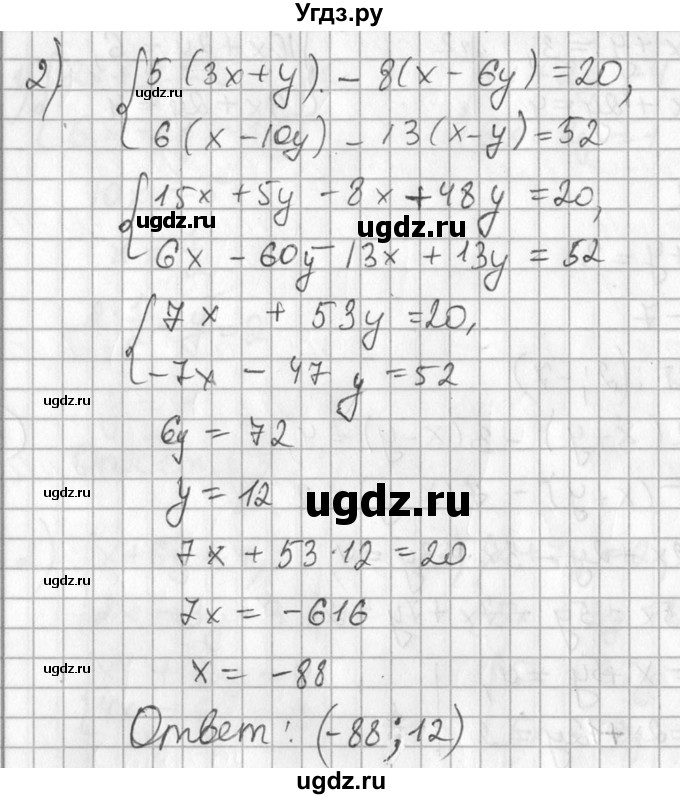 Угдз.ру
2) { 5(3x+y) - 8(x - 6y) = 20,
ugdz.ru
6(x - 10y) - 13(x-y) = 52
{ 15x + 5y - 8x + 48y = 20,
ugdz.ru ugdz.ru
6x - 60y - 13x + 13y = 52
{ 7x + 53y = 20,
-7x - 47y = 52
ugdz.ru
6y = 72
ugdz.ru y = 12 ugdz.ru
7x + 53·12 = 20
ugdz.ru
7x = -616
ugdz.ru x = -88
Ответ: (-88; 12)
ugdz.ru